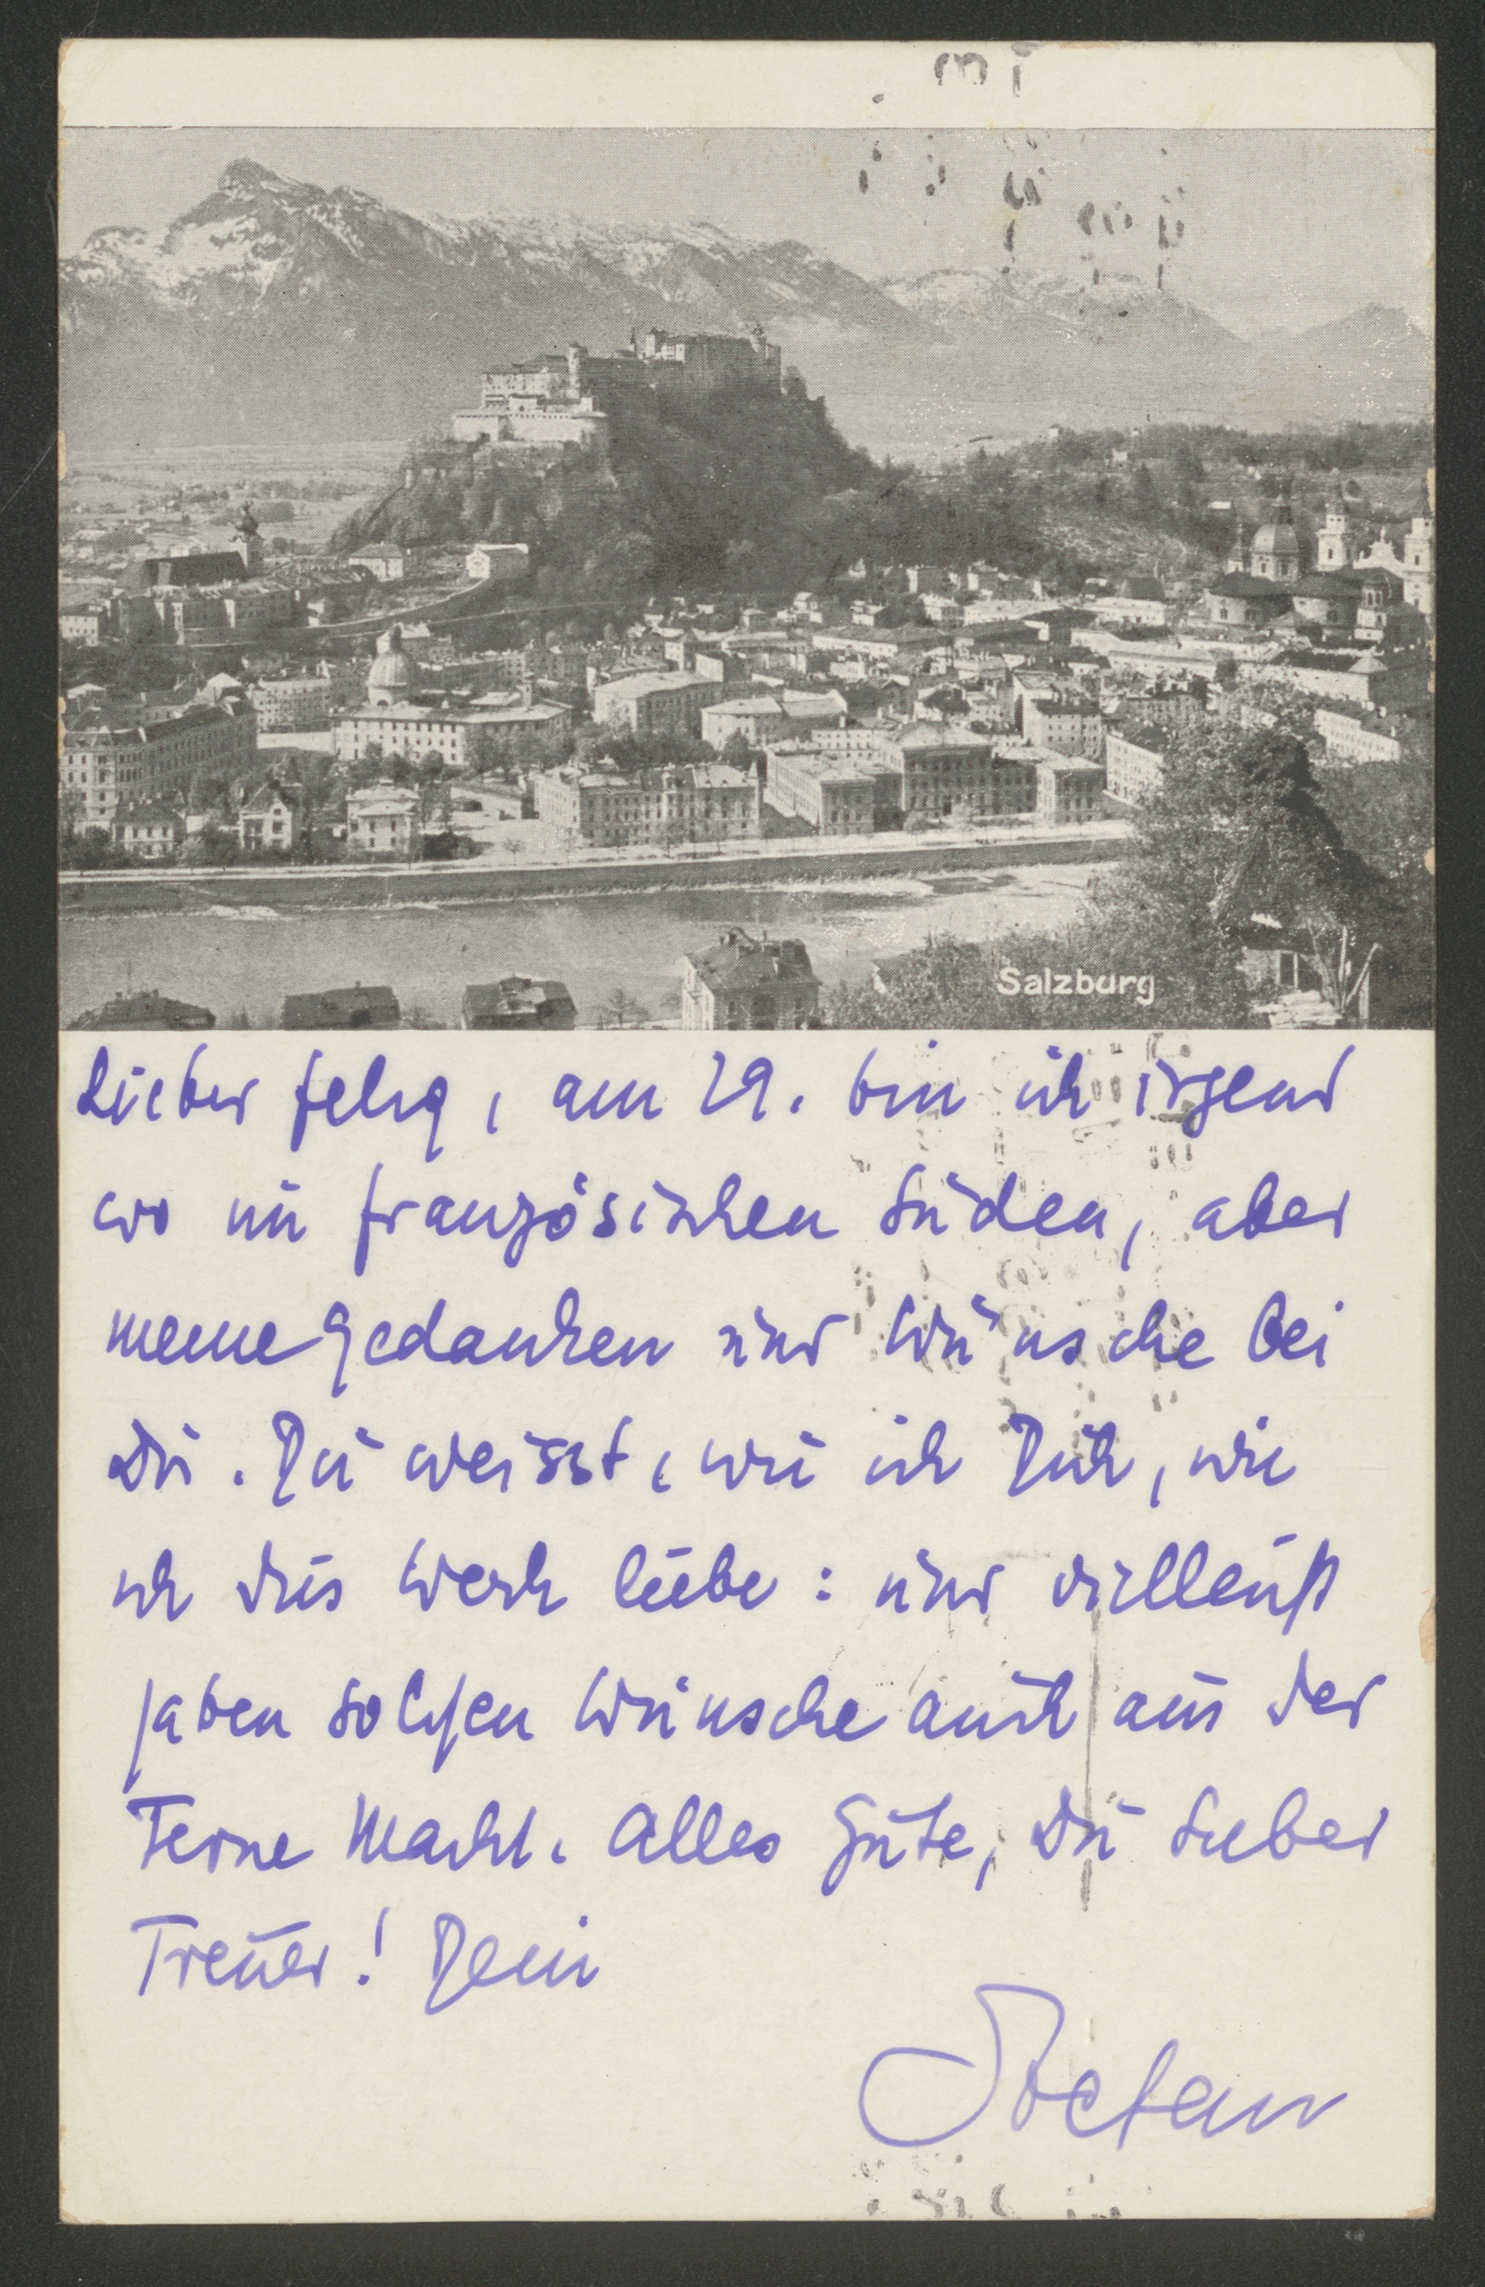 Salzburg
Lieber Felix, am 29. bin ich irgend
wo im französischen Süden, aber
meine Gedanken und Wünsche bei
Dir. Du weisst, wie ich Dich, wie
ich dies Werk liebe: und vielleicht
haben solchen Wünsche auch aus der
Ferne Macht. Alles Gute, Du Lieber
Treuer! Dein
Stefan